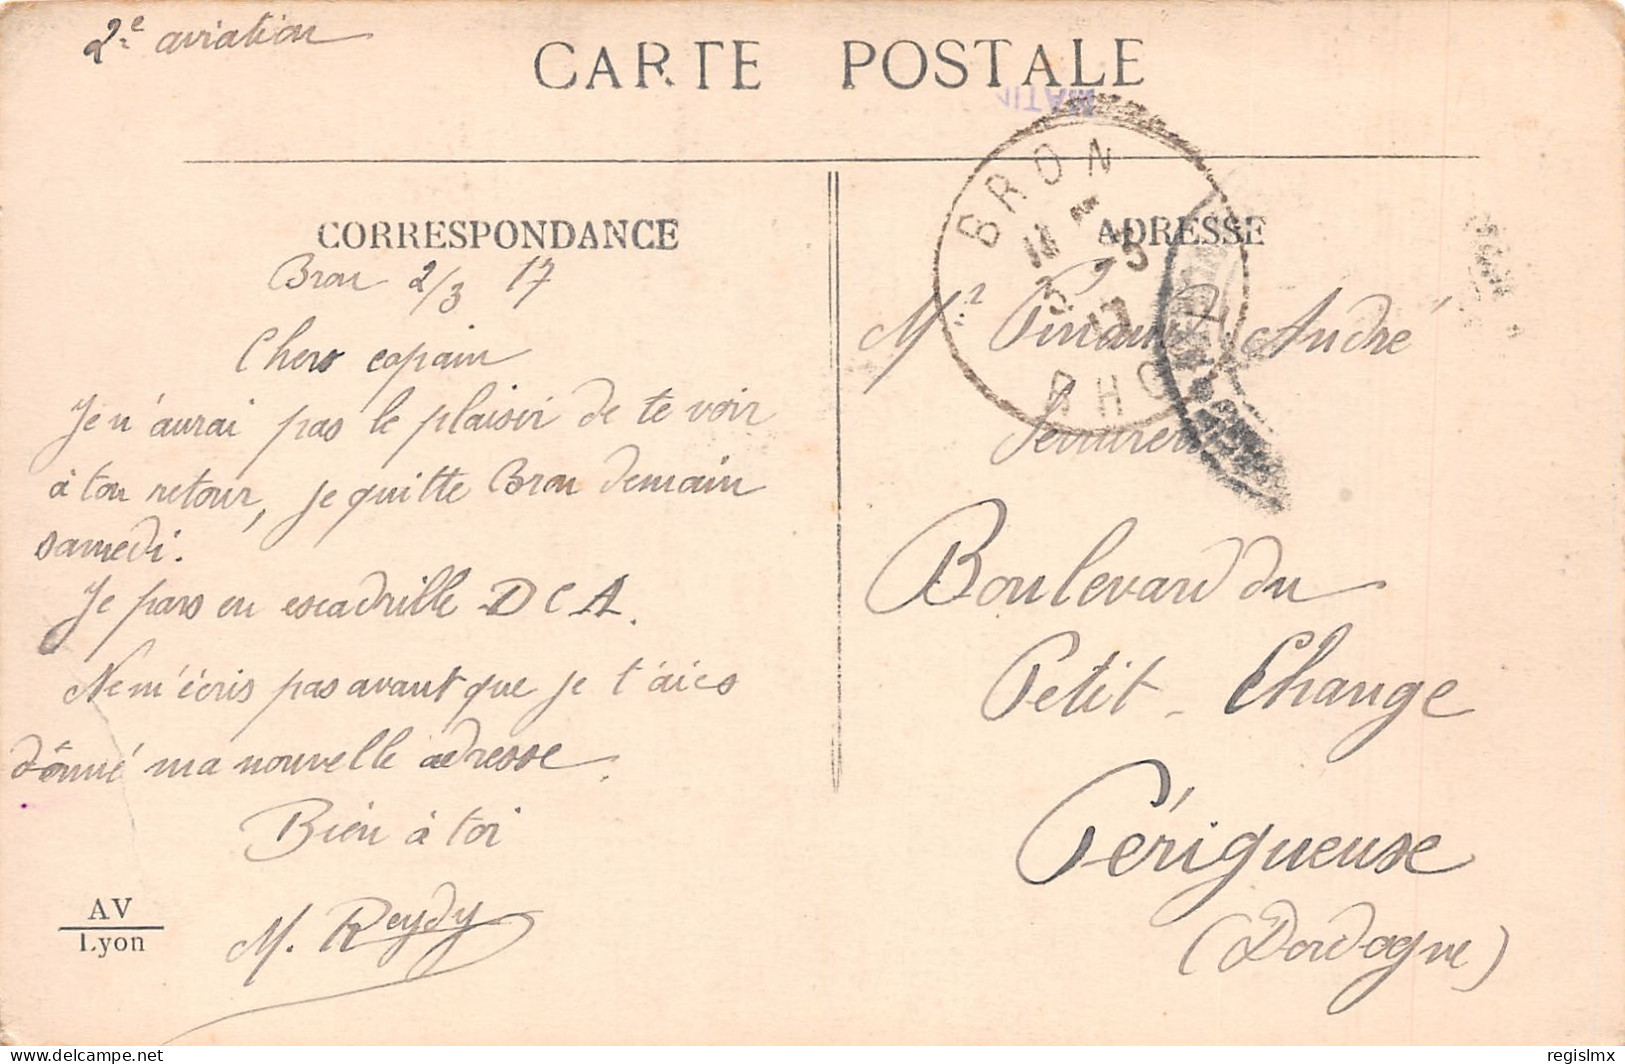 2e aviation
CARTE POSTALE
MATIN
BRON
3 - 3
17
RHO
CORRESPONDANCE
Bron 2/3 17
Chers copain
Je n'aurai pas le plaisir de te voir
à ton retour, je quitte Bron demain
samedi.
Je pars en escadrille DCA.
Ne m'écris pas avant que je t'aies
donné ma nouvelle adresse.
Bien à toi
M. Reydy
AV
Lyon
ADRESSE
Mr André
Boulevard du
Petit-Change
Périgueuse
(Dordogne)
delcampe.net
regislmx